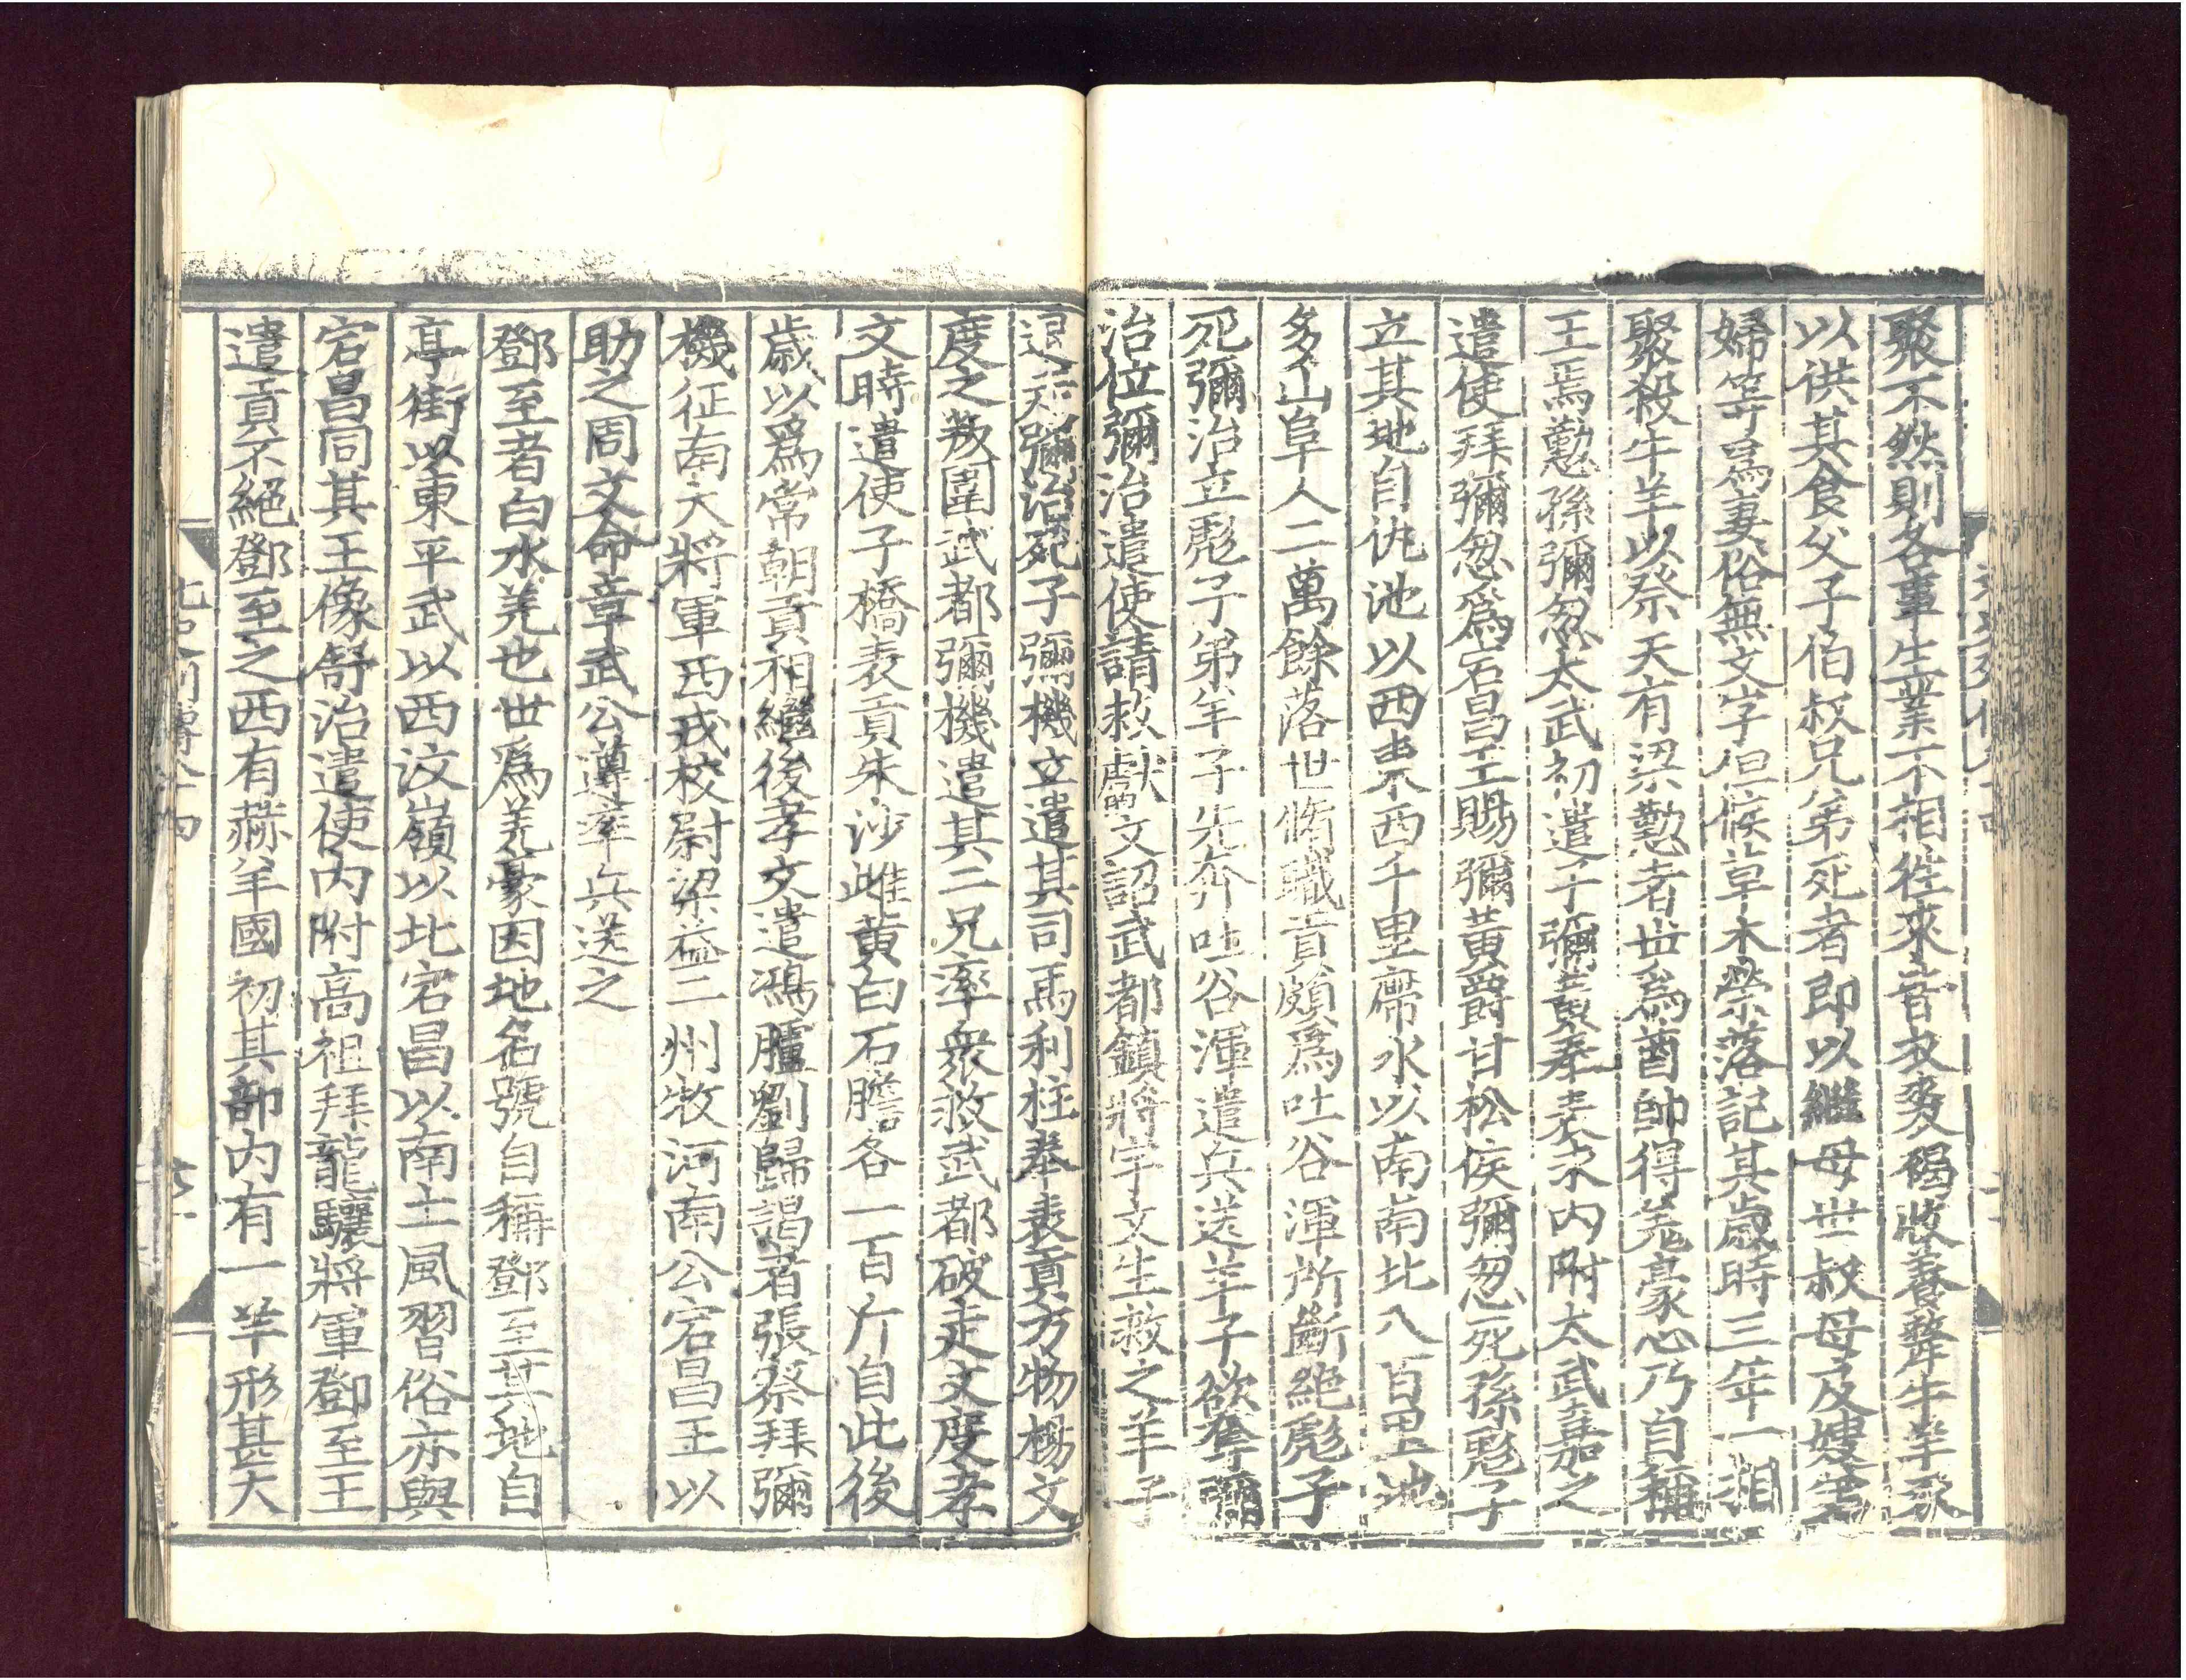 聚不然則各事生業不相徃來皆衣裘褐收養犛牛羊豕
以供其食父子伯叔兄弟死者即以繼母世叔母及嫂
婦等爲妻俗無文字但候草木榮落記其歳時三年一相
聚殺牛羊以祭天有梁懃者世爲酋帥得羌豪心乃自稱
王焉懃孫彌忽太武初遣子彌黃奉表求内附太武嘉之
遣使拜彌忽爲宕昌王賜彌黃爵甘松侯彌忽死孫彪子
立其地自仇池以西東西千里席水以南南北八百里地
多山阜人二萬餘落世脩職貢頗爲吐谷渾所斷絶彪子
死彌治立彪子弟羊子先奔吐谷渾遣兵送羊子欲奪彌
治位彌治遣使請救獻文詔武都鎮將宇文生救之羊子
退走彌治死子彌機立遣其司馬利柱奉表貢方物楊文
度之叛圍武都彌機遣其二兄率衆救武都破走文度孝
文時遣使子橋表貢朱沙雌黃白石膽各一百斤自此後
歳以爲常朝貢相繼後孝文遣鴻臚劉歸謁者張察拜彌
機征南大將軍西戎校尉梁益二州牧河南公宕昌王以
助之周文命章武公遵率兵送之
鄧至者白水羌也世爲羌豪因地名號自稱鄧至其地自
亭街以東平武以西汶嶺以北宕昌以南土風習俗亦與
宕昌同其王像舒治遣使内附高祖拜龍驤將軍鄧至王
遣貢不絶鄧至之西有赫羊國初其部内有一羊形甚大
北史列傳八十四